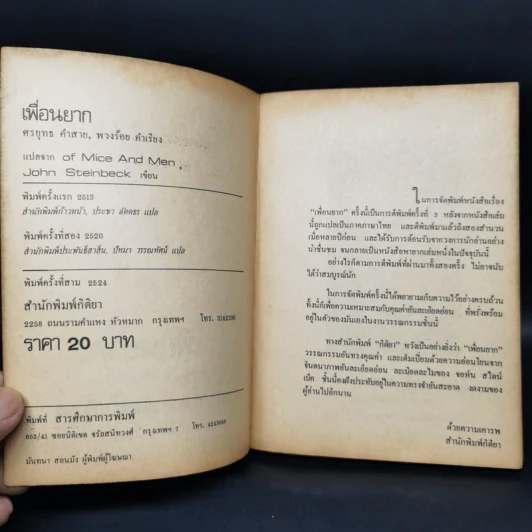 เพื่อนยาก
ศรยุทธ คำสาย, พวงร้อย คำเรียง
แปลจาก of Mice And Men
John Steinbeck เขียน
พิมพ์ครั้งแรก 2513
สำนักพิมพ์ก้าวหน้า, ประชา อัตตธร แปล
พิมพ์ครั้งที่สอง 2520
สำนักพิมพ์ประพันธ์สาส์น, ปัทมา วรรณทัศน์ แปล
พิมพ์ครั้งที่สาม 2524
สำนักพิมพ์กิติยา
2258 ถนนรามคำแหง หัวหมาก กรุงเทพฯ โทร.
ราคา 20 บาท
พิมพ์ที่ สารศึกษาการพิมพ์
653/41 ซอยนิติเขต จรัลสนิทวงศ์ กรุงเทพฯ 7 โทร.
มันทนา สอนมัง ผู้พิมพ์ผู้โฆษณา
ในการจัดพิมพ์หนังสือเรื่อง
“เพื่อนยาก” ครั้งนี้เป็นการตีพิมพ์ครั้งที่ 3 หลังจากหนังสือเล่ม
นี้ถูกแปลเป็นภาคภาษาไทย และตีพิมพ์มาแล้วถึงสองสำนวน
เมื่อหลายปีก่อน และได้รับการต้อนรับจากวงการนักอ่านอย่าง
น่าชื่นชม จนกลายเป็นหนังสือหายากเล่มหนึ่งในปัจจุบันนี้
อย่างไรก็ตามการตีพิมพ์ที่ผ่านมาทั้งสองครั้ง ไม่อาจนับ
ได้ว่าสมบูรณ์นัก
ในการจัดพิมพ์ครั้งนี้ได้พยายามเก็บความไว้อย่างครบถ้วน
ทั้งนี้ก็เพื่อความเหมาะสมกับคุณค่าอันละเอียดอ่อน ที่พรั่งพร้อม
อยู่ในตัวของมันเองในงานวรรณกรรมชิ้นนี้
ทางสำนักพิมพ์ “กิติยา” หวังเป็นอย่างยิ่งว่า “เพื่อนยาก”
วรรณกรรมอันทรงคุณค่า และเต็มเปี่ยมด้วยความอ่อนโยนจาก
จินตนาภาพอันละเอียดอ่อน ละเมียดละไมของ จอห์น สไตน์
เบ็ค ชิ้นนี้คงฝังประทับอยู่ในความทรงจำอันสะอาด งดงามของ
ผู้อ่านไปอีกนาน
ด้วยความเคารพ
สำนักพิมพ์กิติยา